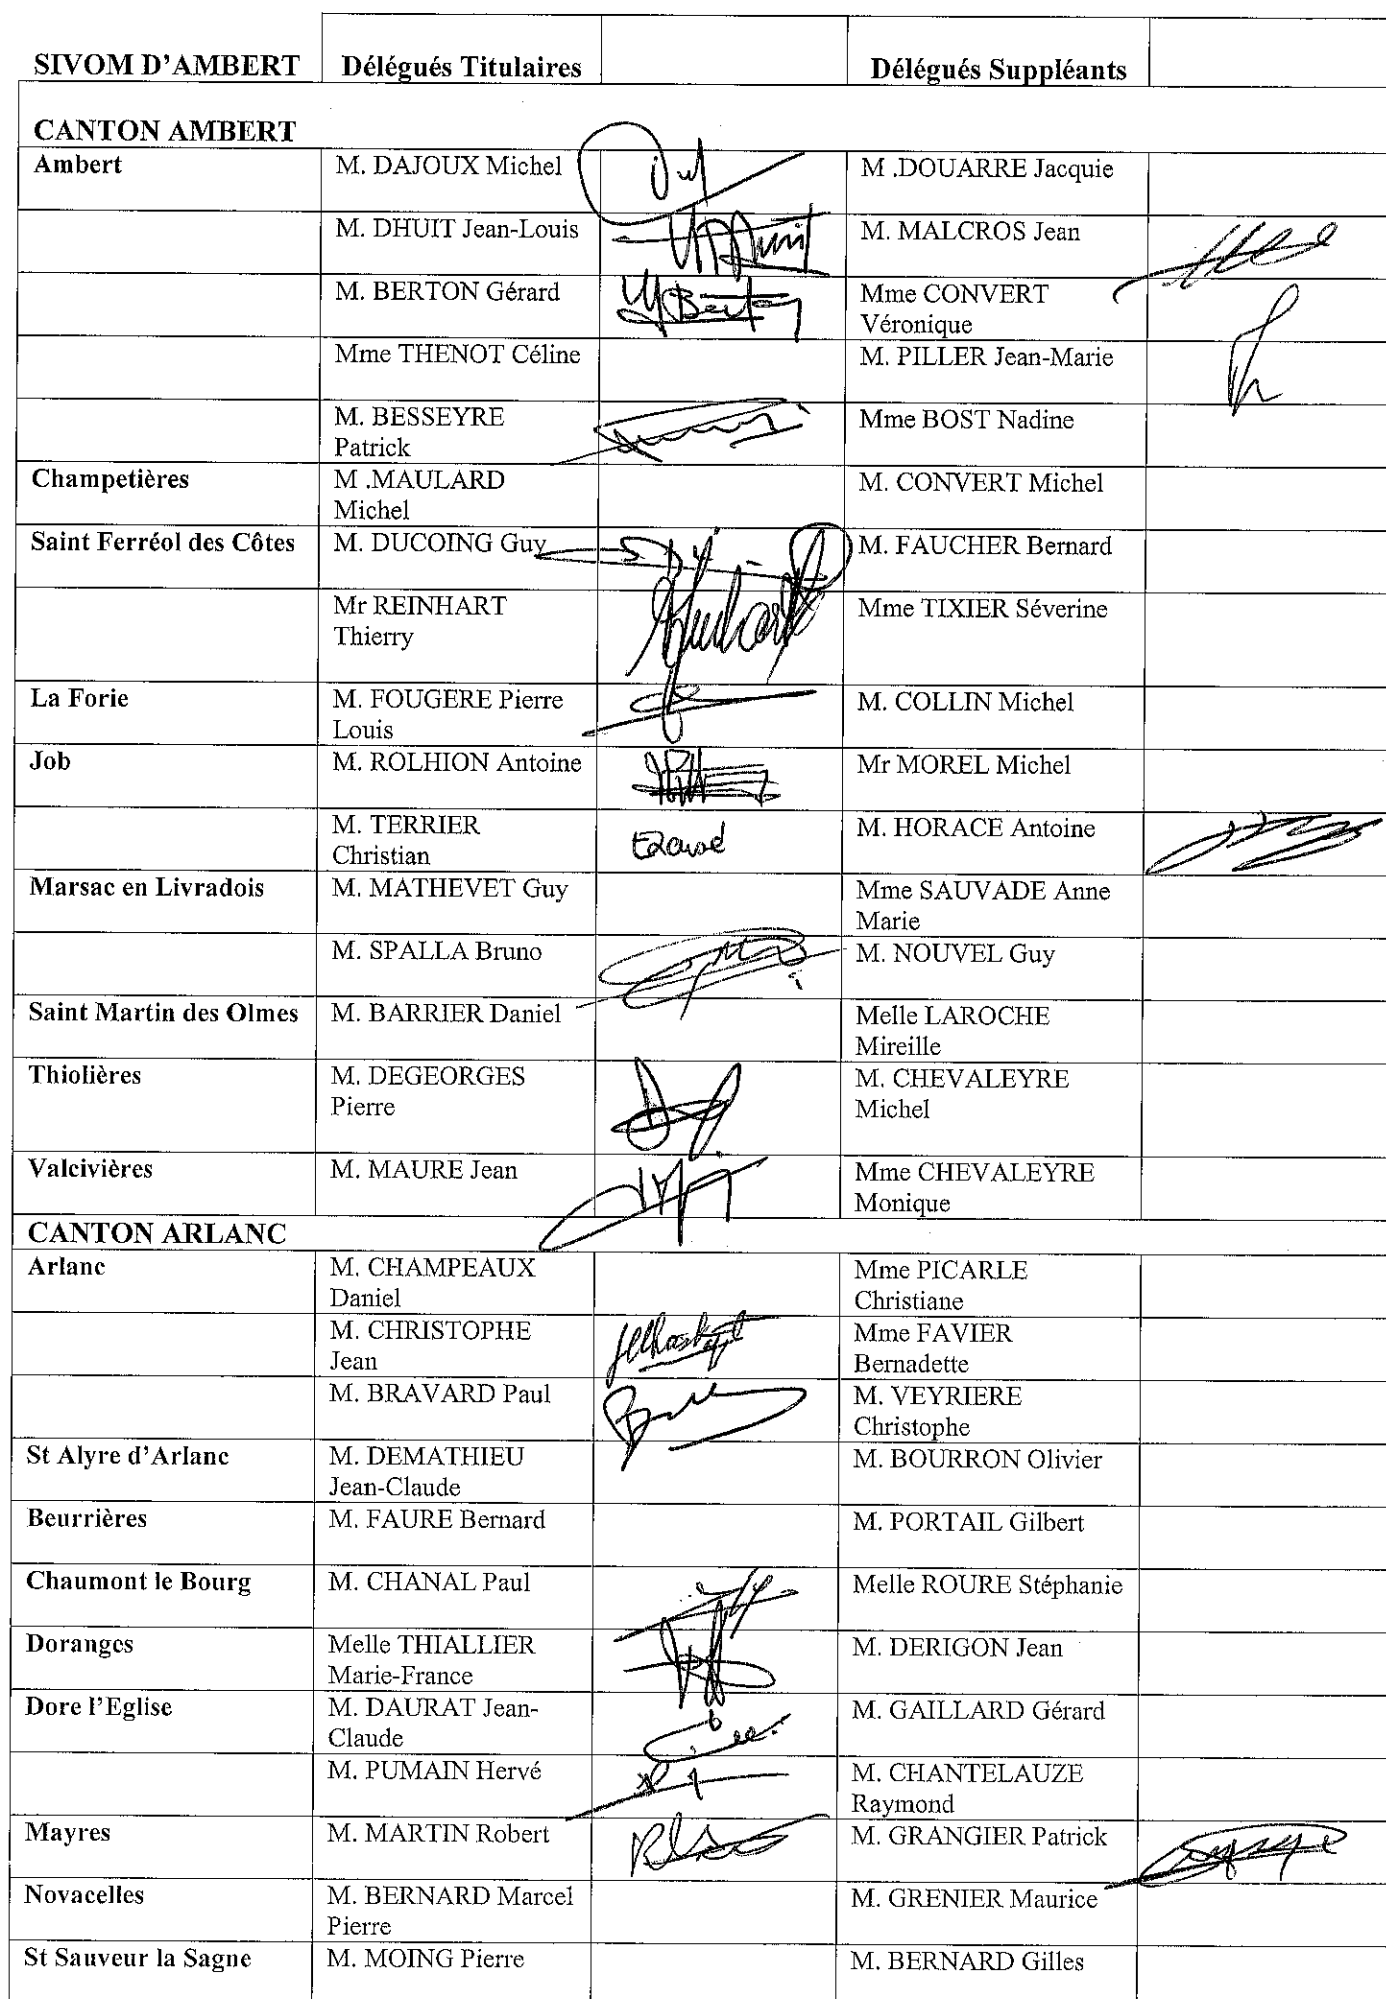 SIVOM D'AMBERT Délégués Titulaires Délégués Suppléants
CANTON AMBERT
Ambert M. DAJOUX Michel M .DOUARRE Jacquie
M. DHUIT Jean-Louis M. MALCROS Jean
M. BERTON Gérard Mme CONVERT
Véronique
Mme THENOT Céline M. PILLER Jean-Marie
M. BESSEYRE Mme BOST Nadine
Patrick
Champetières M .MAULARD M. CONVERT Michel
Michel
Saint Ferréol des Côtes M. DUCOING Guy M. FAUCHER Bernard
Mr REINHART Mme TIXIER Séverine
Thierry
La Forie M. FOUGERE Pierre M. COLLIN Michel
Louis
Job M. ROLHION Antoine Mr MOREL Michel
M. TERRIER Excusé M. HORACE Antoine
Christian
Marsac en Livradois M. MATHEVET Guy Mme SAUVADE Anne
Marie
M. SPALLA Bruno M. NOUVEL Guy
Saint Martin des Olmes M. BARRIER Daniel Melle LAROCHE
Mireille
Thiolières M. DEGEORGES M. CHEVALEYRE
Pierre Michel
Valcivières M. MAURE Jean Mme CHEVALEYRE
Monique
CANTON ARLANC
Arlanc M. CHAMPEAUX Mme PICARLE
Daniel Christiane
M. CHRISTOPHE Mme FAVIER
Jean Bernadette
M. BRAVARD Paul M. VEYRIERE
Christophe
St Alyre d'Arlanc M. DEMATHIEU M. BOURRON Olivier
Jean-Claude
Beurrières M. FAURE Bernard M. PORTAIL Gilbert
Chaumont le Bourg M. CHANAL Paul Melle ROURE Stéphanie
Doranges Melle THIALLIER M. DERIGON Jean
Marie-France
Dore l'Eglise M. DAURAT Jean- M. GAILLARD Gérard
Claude
M. PUMAIN Hervé M. CHANTELAUZE
Raymond
Mayres M. MARTIN Robert M. GRANGIER Patrick
Novacelles M. BERNARD Marcel M. GRENIER Maurice
Pierre
St Sauveur la Sagne M. MOING Pierre M. BERNARD Gilles